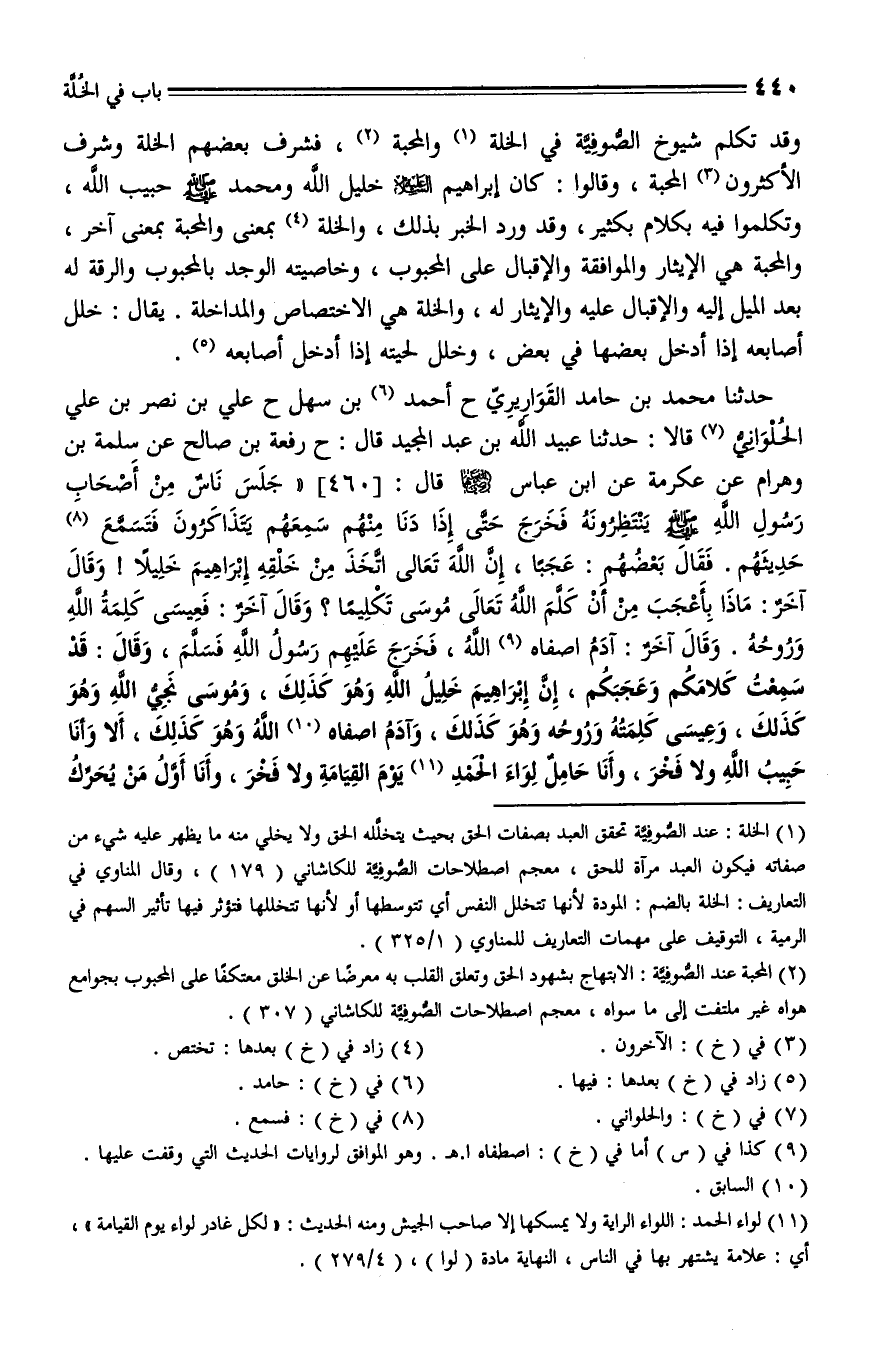 ٤٤٠ باب في الخُلَّة
وقد تكلم شيوخ الصُّوفِيَّة في الخلة (١) والمحبة (٢) ، فشرف بعضهم الخلة وشرف
الأكثرون (٣) المحبة ، وقالوا : كان إبراهيم عليه السلام خليل اللَّه ومحمد ﷺ حبيب اللَّه ،
وتكلموا فيه بكلام بكثير ، وقد ورد الخبر بذلك ، والخلة (٤) بمعنى والمحبة بمعنى آخر ،
والمحبة هي الإيثار والموافقة والإقبال على المحبوب ، وخاصيته الوجد بالمحبوب والرقة له
بعد الميل إليه والإقبال عليه والإيثار له ، والخلة هي الاختصاص والمداخلة . يقال : خلل
أصابعه إذا أدخل بعضها في بعض ، وخلل لحيته إذا أدخل أصابعه (٥) .
حدثنا محمد بن حامد القَوَارِيرِيّ ح أحمد (٦) بن سهل ح علي بن نصر بن علي
الحُلْوَانِيُّ (٧) قالا : حدثنا عبيد اللَّه بن عبد المجيد قال : ح رفعة بن صالح عن سلمة بن
وهرام عن عكرمة عن ابن عباس رضي الله عنهما قال : [٤٦٠] « جَلَسَ نَاسٌ مِنْ أَصْحَابِ
رَسُولِ اللَّهِ ﷺ يَنْتَظِرُونَهُ فَخَرَجَ حَتَّى إِذَا دَنَا مِنْهُم سَمِعَهُم يَتَذَاكَرُونَ فَتَسَمَّعَ (٨)
حَدِيثَهُم . فَقَالَ بَعْضُهُم : عَجَبًا ، إِنَّ اللَّهَ تَعَالى اتَّخَذَ مِنْ خَلْقِهِ إِبْرَاهِيمَ خَلِيلًا ! وَقَالَ
آخَرٌ : مَاذَا بِأَعْجَبَ مِنْ أَنْ كَلَّمَ اللَّهُ تَعَالَى مُوسَى تَكْلِيمًا ؟ وَقَالَ آخَرٌ : فَعِيسَى كَلِمَةُ اللَّهِ
وَرُوحُهُ . وَقَالَ آخَرٌ : آدَمُ اصفاه (٩) اللَّهُ ، فَخَرَجَ عَلَيْهِم رَسُولُ اللَّهِ فَسَلَّمَ ، وَقَالَ : قَدْ
سَمِعْتُ كَلَامَكُم وَعَجَبَكُم ، إِنَّ إِبْرَاهِيمَ خَلِيلُ اللَّهِ وَهُوَ كَذَلِكَ ، وَمُوسَى نَجِيُّ اللَّهِ وَهُوَ
كَذَلكَ ، وَعِيسَى كَلِمَتُهُ وَرُوحُه وَهُوَ كَذَلكَ ، وَآدَمُ اصفاه (١٠) اللَّهُ وَهُوَ كَذَلِكَ ، أَلا وَأَنَا
حَبِيبُ اللَّهِ ولا فَخْرَ ، وأَنَا حَامِلٌ لِوَاءَ الحَمْدِ (١١) يَوْمَ القِيَامَةِ ولا فَخْرَ ، وَأَنَا أَوَّلُ مَنْ يُحَرِّكُ
(١) الخلة : عند الصُّوفِيَّة تحقق العبد بصفات الحق بحيث يتخلَّله الحق ولا يخلي منه ما يظهر عليه شيء من
صفاته فيكون العبد مرآة للحق ، معجم اصطلاحات الصُّوفِيَّة للكاشاني ( ١٧٩ ) ، وقال المناوي في
التعاريف : الخلة بالضم : المودة لأنها تتخلل النفس أي تتوسطها أو لأنها تتخللها فتؤثر فيها تأثير السهم في
الرمية ، التوقيف على مهمات التعاريف للمناوي ( ٣٢٥/١ ) .
(٢) المحبة عند الصُّوفِيَّة : الابتهاج بشهود الحق وتعلق القلب به معرضًا عن الخلق معتكفًا على المحبوب بجوامع
هواه غير ملتفت إلى ما سواه ، معجم اصطلاحات الصُّوفِيَّة للكاشاني ( ٣٠٧ ) .
(٣) في ( خ ) : الآخرون . (٤) زاد في ( خ ) بعدها : تختص .
(٥) زاد في ( خ ) بعدها : فيها . (٦) في ( خ ) : حامد .
(٧) في ( خ ) : والحلواني . (٨) في ( خ ) : فسمع .
(٩) كذا في ( س ) أما في ( خ ) : اصطفاه ا.هـ . وهو الموافق لروايات الحديث التي وقفت عليها .
(١٠) السابق .
(١١) لواء الحمد : اللواء الراية ولا يمسكها إلا صاحب الجيش ومنه الحديث : « لكل غادر لواء يوم القيامة » ،
أي : علامة يشتهر بها في الناس ، النهاية مادة ( لوا ) ، ( ٢٧٩/٤ ) .